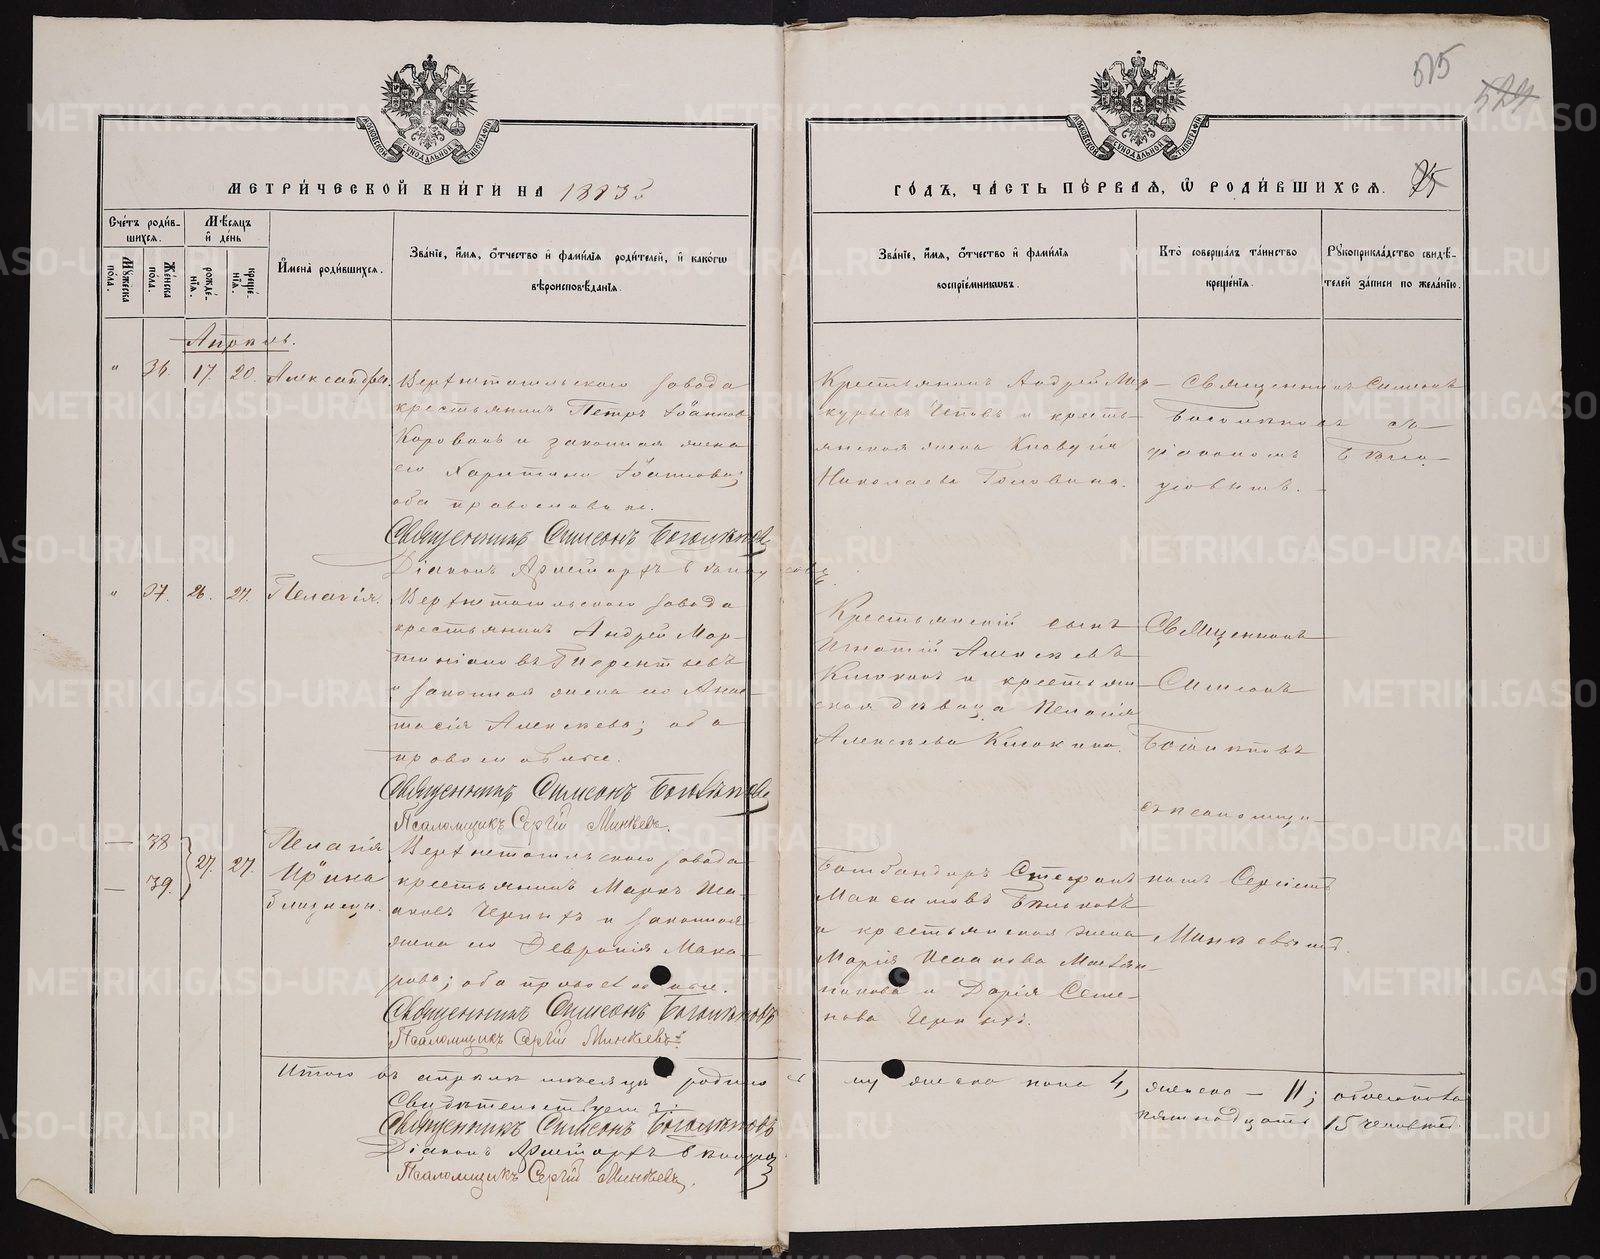 515
524
МОСКОВСКОЙ СѴНОДАЛЬНОЙ ТИПОГРАФІИ
МОСКОВСКОЙ СѴНОДАЛЬНОЙ ТИПОГРАФІИ
МЕТРИ́ЧЕСКОЙ КНИ́ГИ НА 1883
ГО́ДЪ, ЧА́СТЬ ПЕ́РВАЯ, Ѡ РОДИ́ВШИХСЯ. 35
Сче́тъ роди́в-
шихся.
Мѹ́жеска по́ла.
Же́нска по́ла.
Мѣ́сяцъ
и҆ де́нь
рожде́-
нїя.
креще́-
нїя.
И҆мена̀ роди́вшихся.
Зва́нїе, и҆́мя, ѻ҆́тчество и҆ фами́лїя роди́телей, и҆ како́гѡ
вѣроисповѣ́данїя.
Зва́нїе, и҆́мя, ѻ҆́тчество и҆ фами́лїя
воспрїе́мниковъ.
Кто̀ соверша́лъ та́инство
креще́нїя.
Рѹкоприкла́дство свидѣ́-
телей за́писи по жела́нїю.
Апрѣль.
" 36. 17. 20. Александра.
Верхнетагильскаго завода
крестьянинъ Петръ Іоанновъ
и законная жена
его Харитина Іоаннова;
оба православные.
Священникъ Симеонъ Боголѣповъ
Діаконъ Аристархъ
Крестьянинъ Андрей Мер-
курьевъ и кресть-
янская жена Клавдія
Николаева Головина.
Священникъ Симеонъ
Боголѣповъ съ
діакономъ
" 37. 26. 27. Пелагія.
Верхнетагильскаго завода
крестьянинъ Андрей Мар-
тиніановъ Терентьевъ
и законная жена его Анас-
тасія Алексѣева; оба
православные.
Священникъ Симеонъ Боголѣповъ
Псаломщикъ Сергій Минѣевъ.
Крестьянскій сынъ
Игнатій Алексѣевъ
Клюкинъ и крестьян
ская дѣвица Пелагія
Алексѣева Клюкина.
Священникъ
Симеонъ
Боголѣповъ
съ псаломщи-
— 38
— 39.
27. 27.
Пелагія
Ирина
близнецы.
Верхнетагильскаго завода
крестьянинъ Маркъ Иса-
аковъ Черныхъ и законная
жена его Февронія Мака-
рова; оба православные.
Священникъ Симеонъ Боголѣповъ
Псаломщикъ Сергій Минѣевъ.
Бомбандиръ Стефанъ
Максимовъ Бѣльковъ
и крестьянская жена
Марія Исаакова
и Дарія Семе-
нова Черныхъ.
комъ Сергіемъ
Минѣевымъ.
Итого въ апрѣлѣ мѣсяцѣ родилось
мужеска пола 4, женска — 11; обоего пола
пятнадцать 15 человѣкъ.
Свидѣтельствуемъ:
Священникъ Симеонъ Боголѣповъ
Діаконъ Аристархъ
Псаломщикъ Сергій Минѣевъ.
METRIKI.GASO-URAL.RU